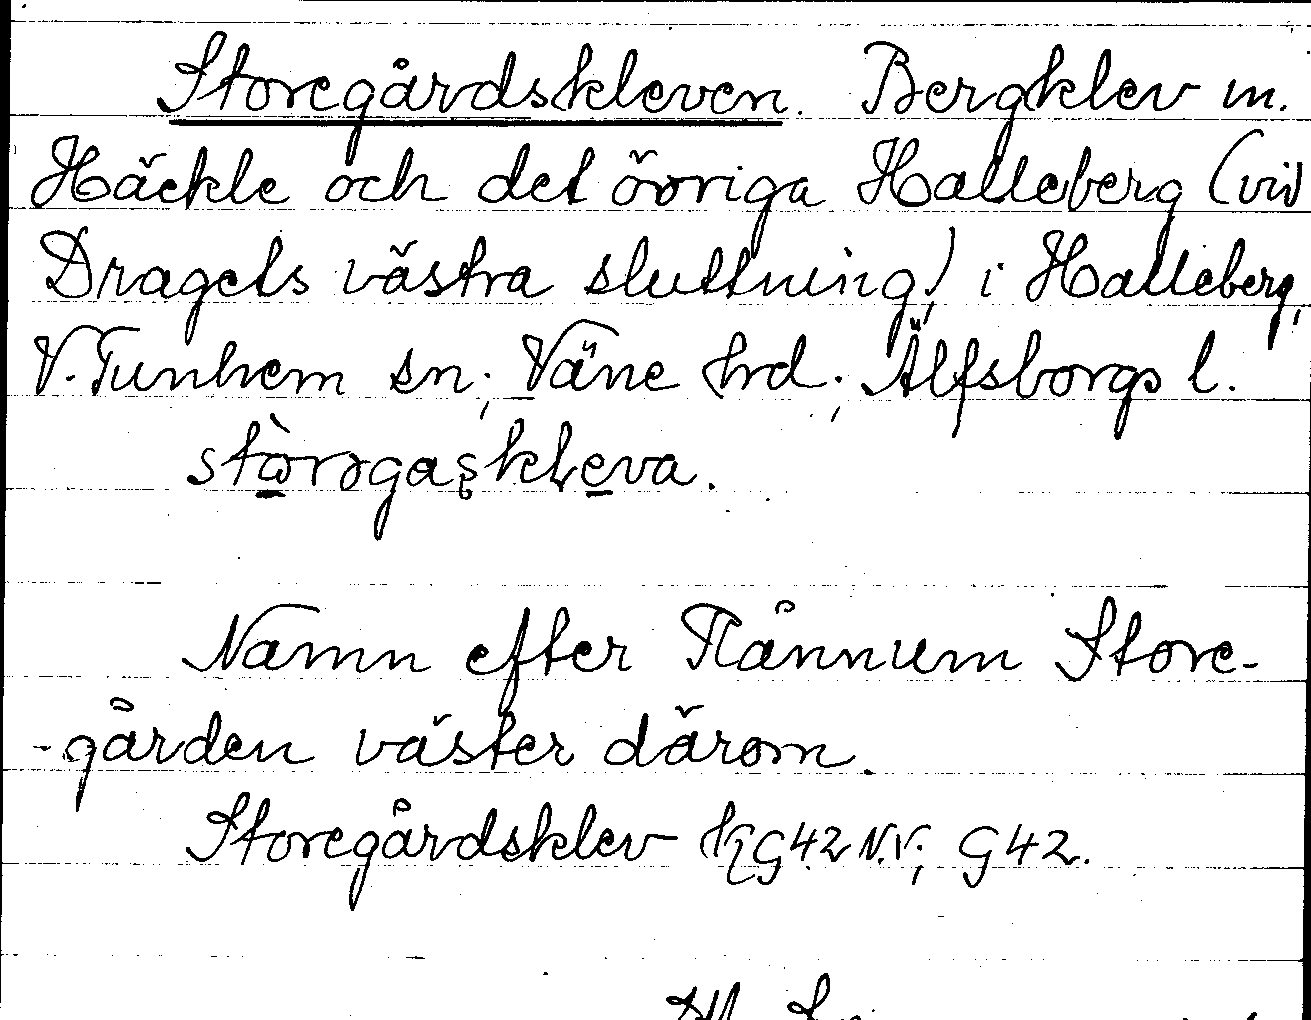 Storegårdskleven. Bergklev m.
Häckle och det övriga Halleberg (vid
Dragets västra sluttning) i Halleberg,
V. Tunhem sn; Väne hrd; Älfsborgs l.
Namn efter Flånnum Store-
-gården väster därom.
Storegårdsklev G42 N.V; G42.